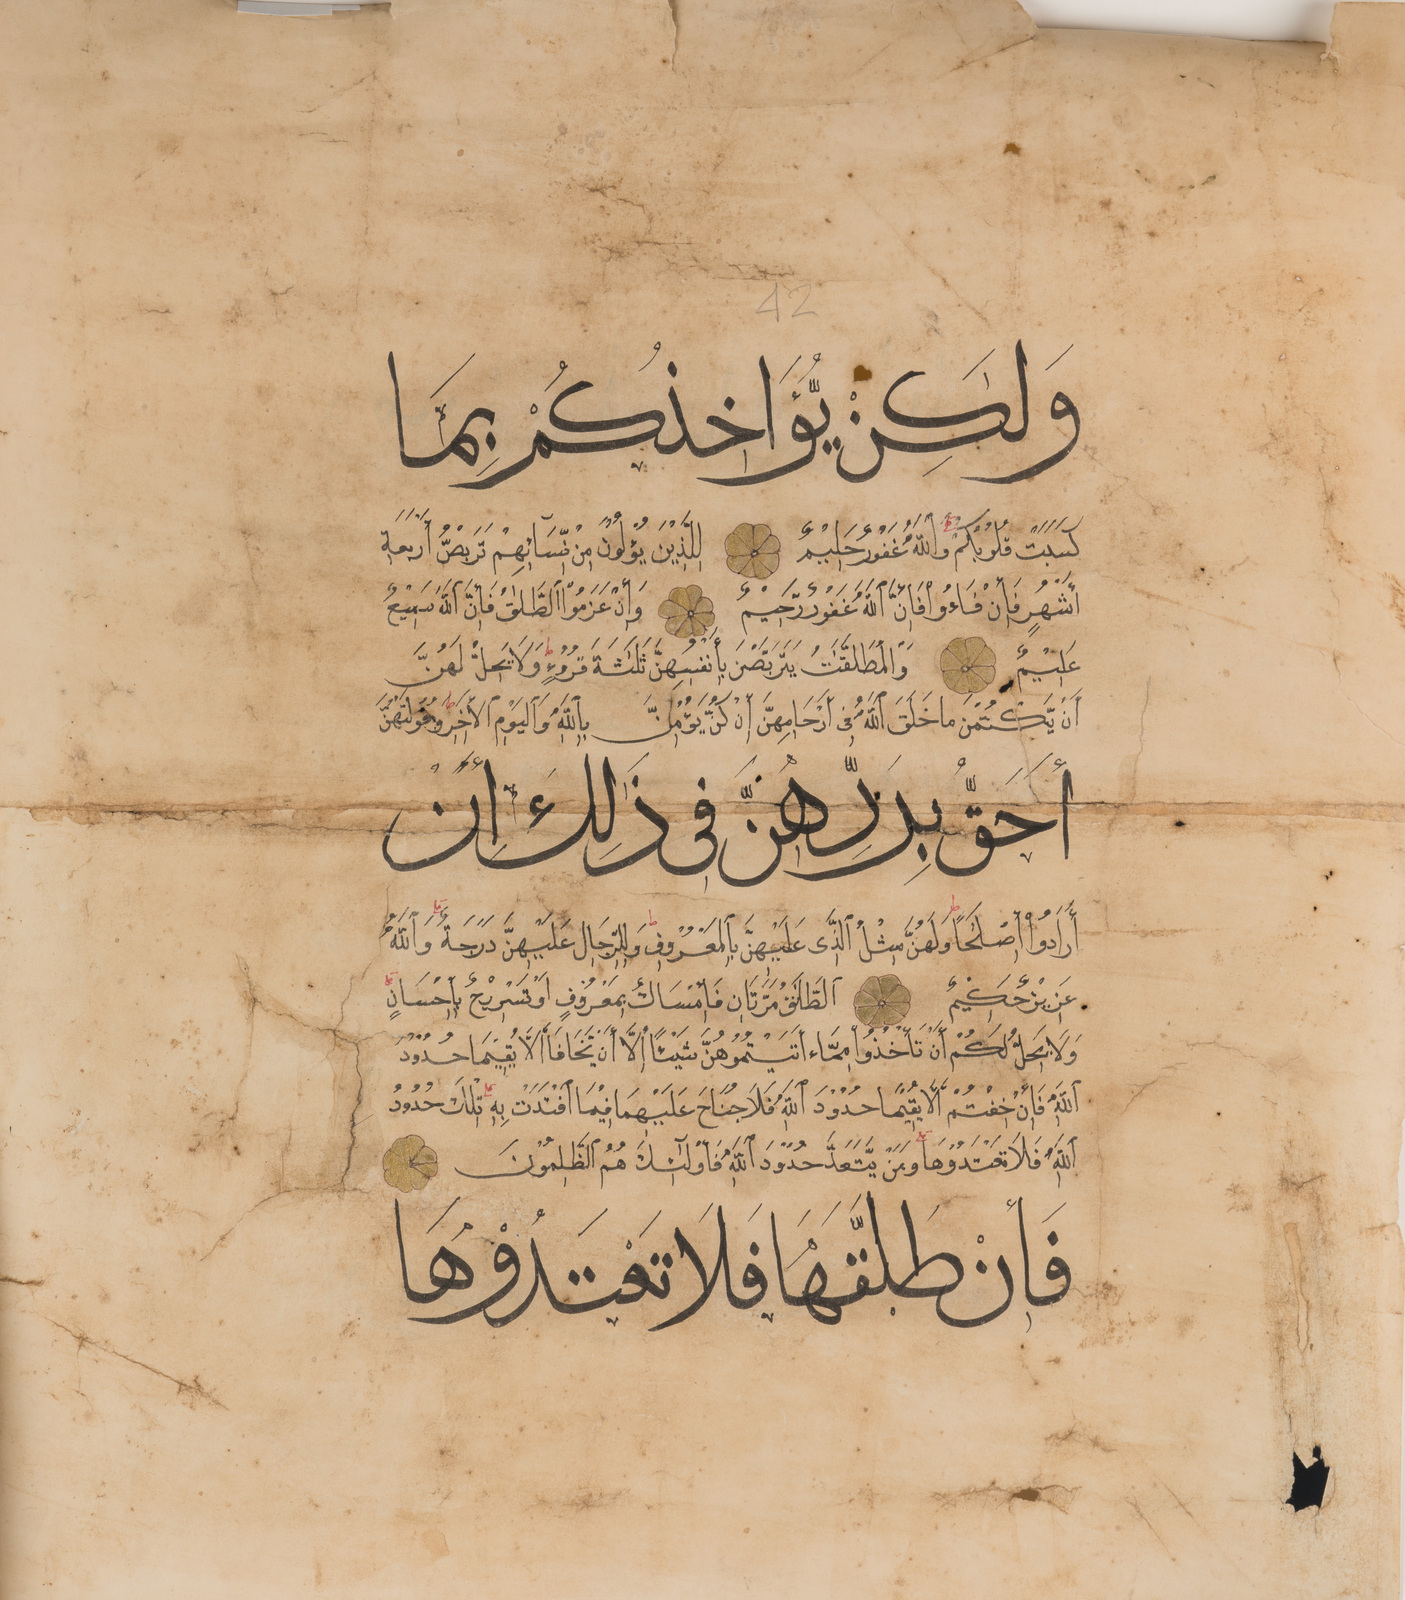 42
وَلَٰكِنْ يُّؤَاخِذُكُمْ بِمَا
كَسَبَتْ قُلُوْبُكُمْ ط وَٱللّٰهُ غَفُوْرٌ حَلِيْمٌ لِلَّذِيْنَ يُؤْلُوْنَ مِنْ نِّسَآئِهِمْ تَرَبُّصُ أَرْبَعَةِ
أَشْهُرٍ فَإِنْ فَاءُو فَإِنَّ ٱللّٰهَ غَفُوْرٌ رَّحِيْمٌ وَإِنْ عَزَمُوْا ٱلطَّلَٰقَ فَإِنَّ ٱللّٰهَ سَمِيْعٌ
عَلِيْمٌ وَٱلْمُطَلَّقَٰتُ يَتَرَبَّصْنَ بِأَنْفُسِهِنَّ ثَلَٰثَةَ قُرُوْءٍ ط وَلَا يَحِلُّ لَهُنَّ
أَنْ يَّكْتُمْنَ مَا خَلَقَ ٱللّٰهُ فِى أَرْحَامِهِنَّ إِنْ كُنَّ يُؤْمِنَّ بِٱللّٰهِ وَٱلْيَوْمِ ٱلْأَخِرِ ط وَبُعُولَتُهُنَّ
أَحَقُّ بِرَدِّهِنَّ فِى ذَٰلِكَ إِنْ
أَرَادُوْا إِصْلَٰحًا ط وَلَهُنَّ مِثْلُ ٱلَّذِى عَلَيْهِنَّ بِٱلْمَعْرُوْفِ ط وَلِلرِّجَالِ عَلَيْهِنَّ دَرَجَةٌ ط وَٱللّٰهُ
عَزِيْزٌ حَكِيْمٌ ٱلطَّلَٰقُ مَرَّتَانِ فَإِمْسَاكٌ بِمَعْرُوْفٍ أَوْ تَسْرِيْحٌ بِإِحْسَانٍ ط
وَلَا يَحِلُّ لَكُمْ أَنْ تَأْخُذُوْا مِمَّاء اتَيْتُمُوْهُنَّ شَيْئًا إِلَّا أَنْ يَّخَافَا أَلَّا يُقِيْمَا حُدُوْدَ
ٱللّٰهِ فَإِنْ خِفْتُمْ أَلَّا يُقِيْمَا حُدُوْدَ ٱللّٰهِ فَلَا جُنَاحَ عَلَيْهِمَا فِيْمَا ٱفْتَدَتْ بِهِ ط تِلْكَ حُدُوْدُ
ٱللّٰهِ فَلَا تَعْتَدُوْهَا ط وَمَنْ يَّتَعَدَّ حُدُوْدَ ٱللّٰهِ فَأُولَٰئِكَ هُمُ ٱلظَّٰلِمُوْنَ
فَإِنْ طَلَّقَهَا فَلَا تَعْتَدُوْهَا